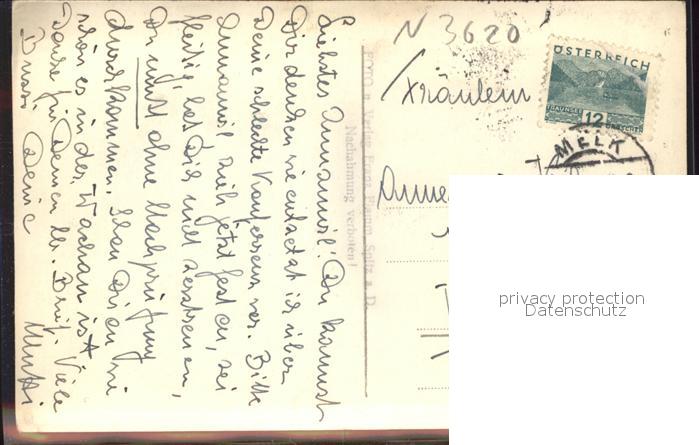 Liebstes Annamirl! Du kannst
Dir denken wie entsetzt ich über
Deine schlechte Konferenz war. Bitte
Annamirl nich jetzt fest an, sei
fleißig, laß Dich nicht
Du mußt ohne Nachprüfung
durchkommen. Schau Dir an wie
schön es in der Wachau ist.
Danke für Deinen lb. Brief. Viele
Bussi Deine Mutti
FOTO u. Verlag Franz Flamm Spitz a. D.
Nachahmung verboten!
N 3620
ÖSTERREICH
TRAUNSEE
12 GROSCHEN
MELK
Fräulein
Anne
privacy protection
Datenschutz